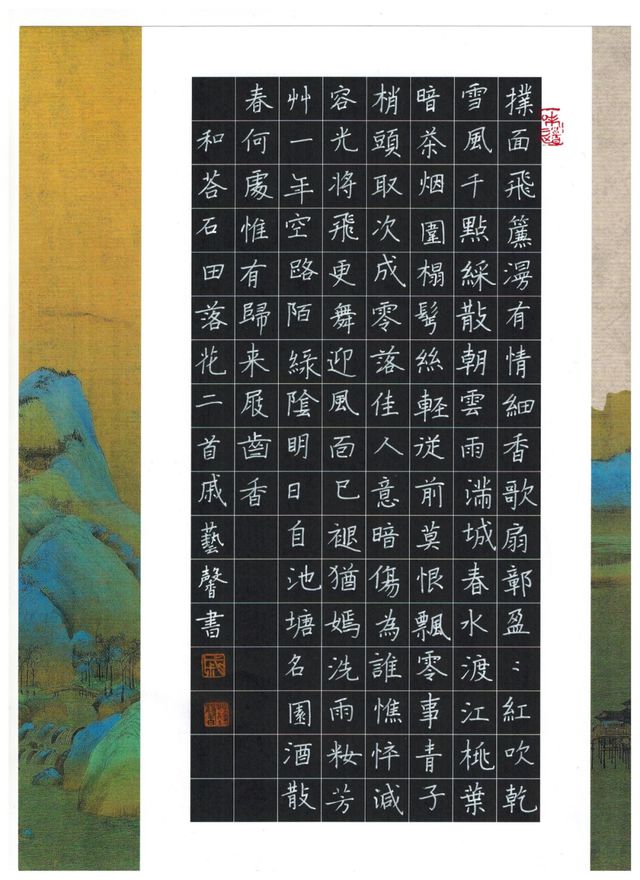 撲面飛簾漫有情細香歌扇鄣盈〻紅吹乾
雪風千點綵散朝雲雨滿城春水渡江桃葉
暗茶烟圍榻髩絲軽従前莫恨飄零事青子
梢頭取次成零落佳人意暗傷為誰憔悴減
容光将飛更舞迎風面已褪猶嫣洗雨妝芳
艸一年空路陌綠陰明日自池塘名園酒散
春何處惟有歸来屐齒香
和荅石田落花二首戚藝馨書